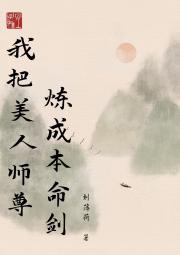 我把美人师尊
炼成本命剑
刘落荷 著